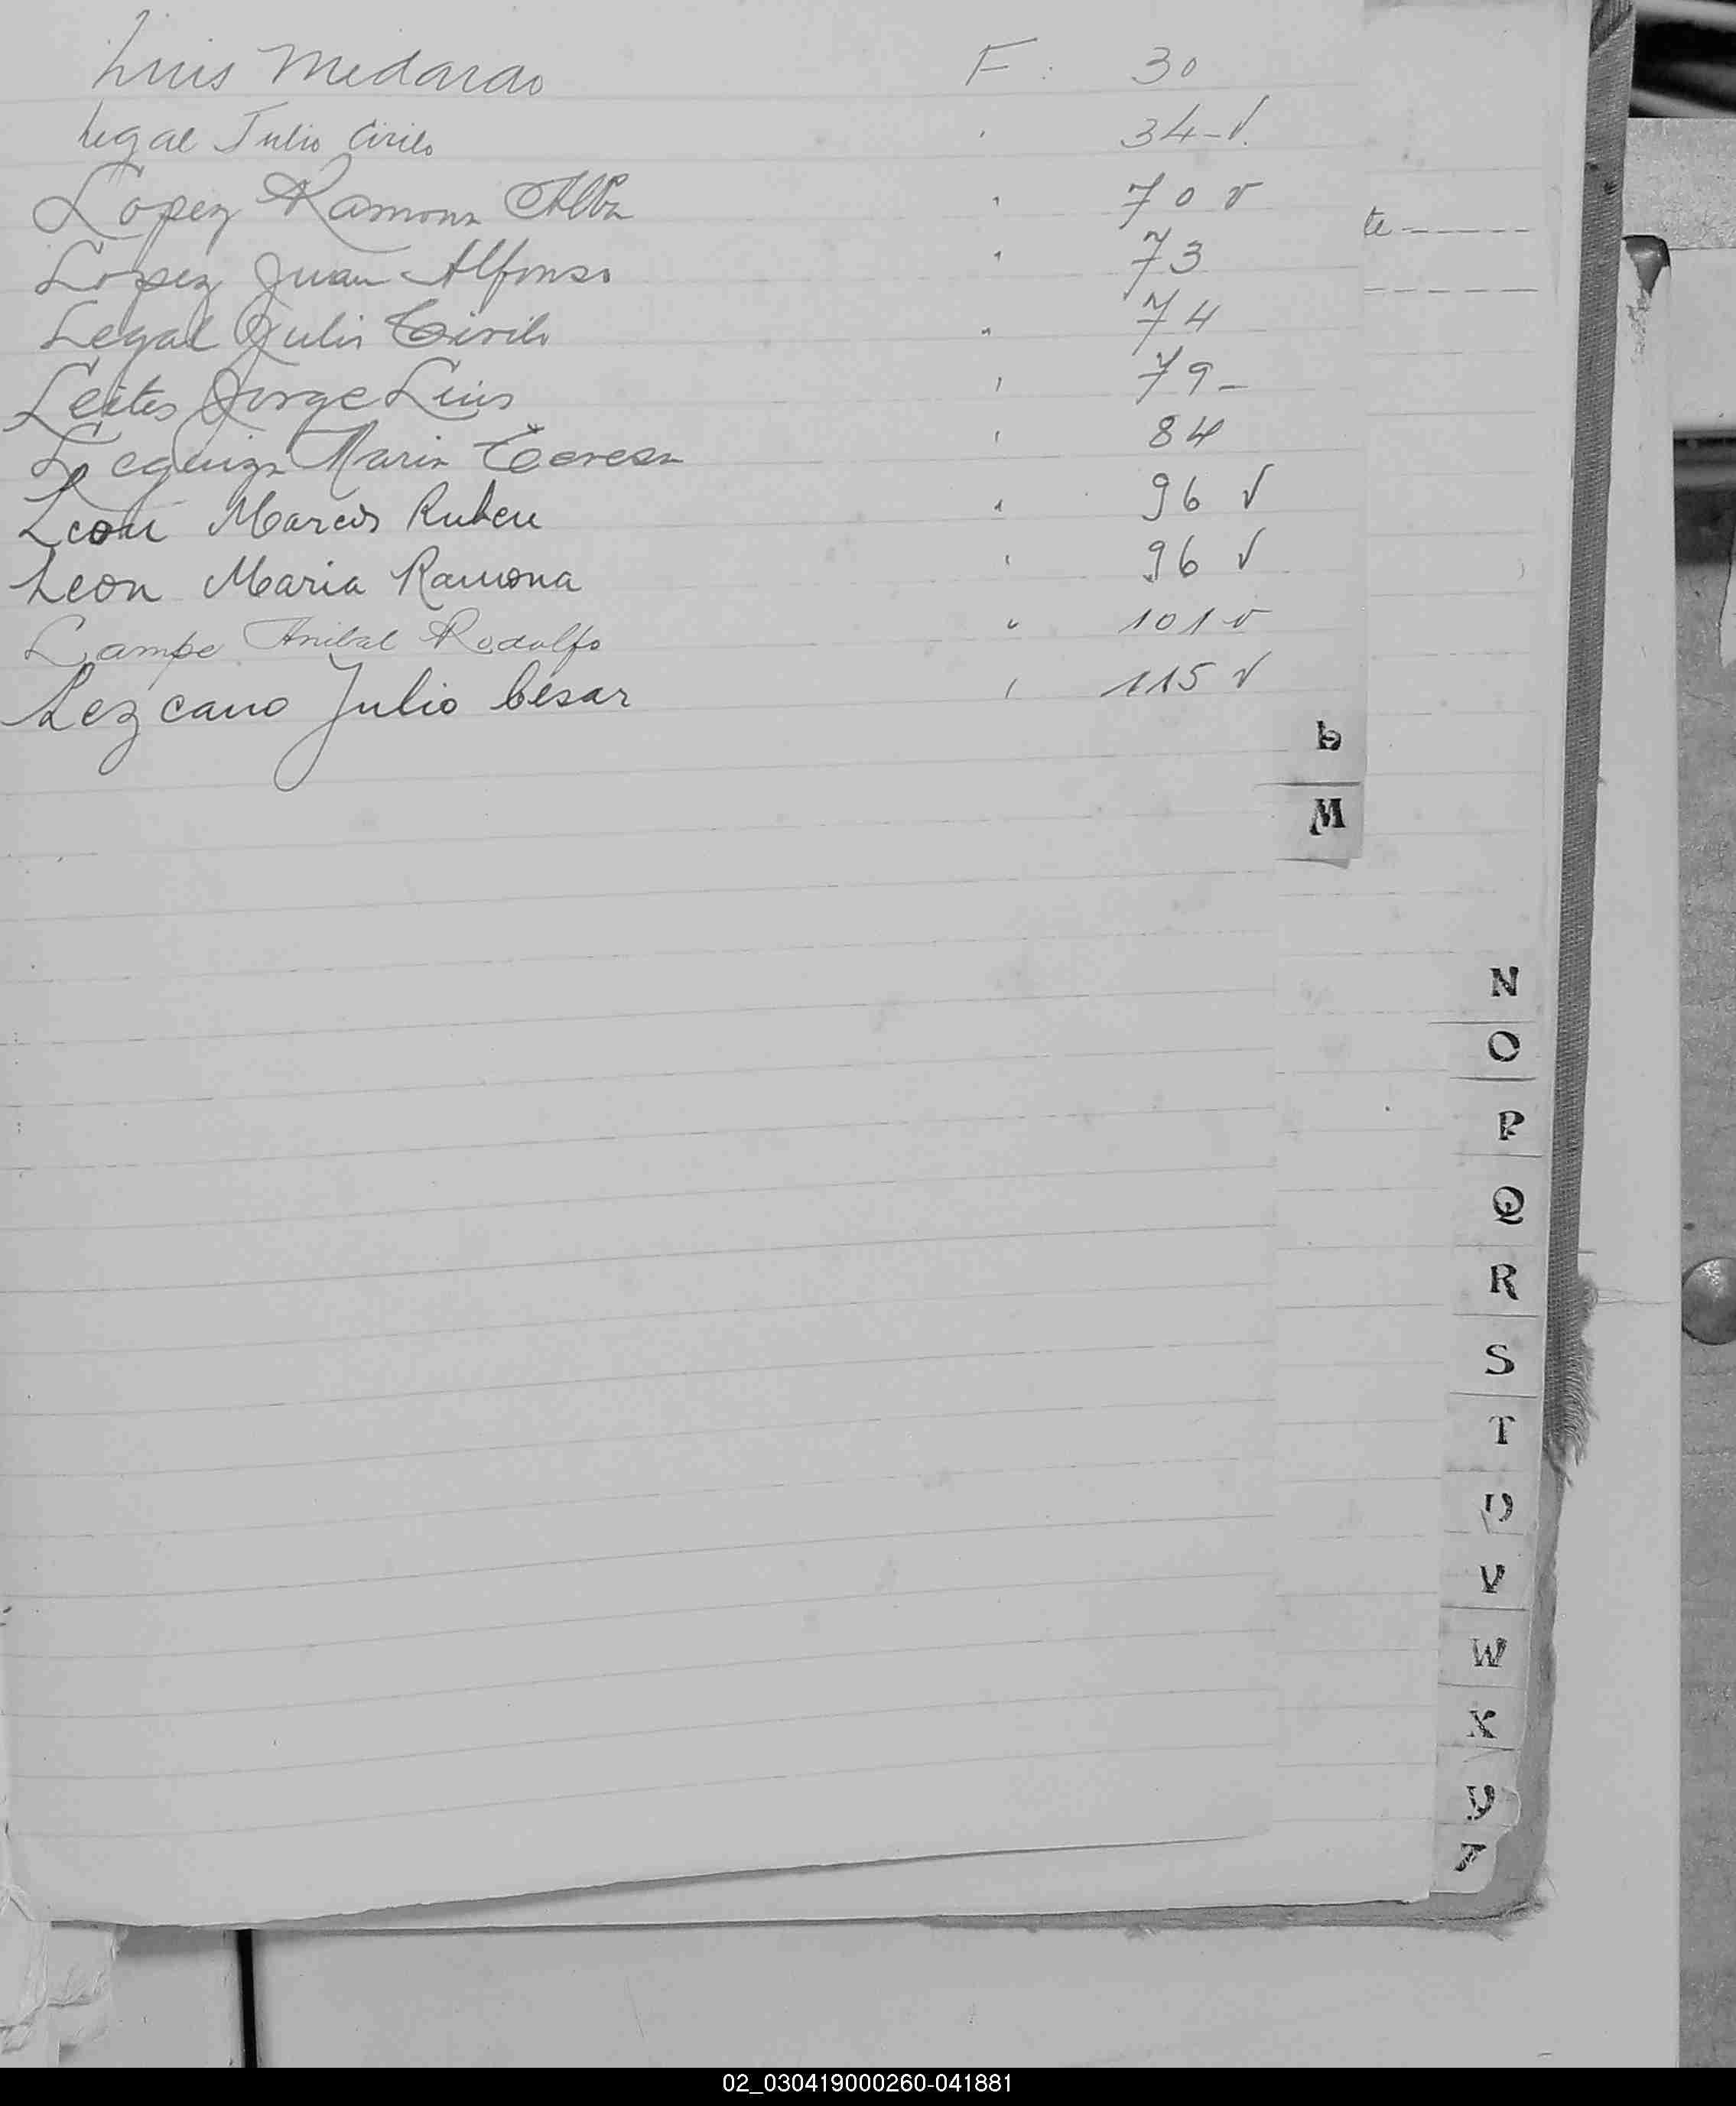 Luis Medardo F. 30
Legal Julio Cirilo " 34-v.
Lopez Ramona Alba " 70 v
Lopez Juan Alfonso " 73
Legal Julio Cirilo " 74
Leites Jorge Luis " 79-
Leguiza Maria Teresa " 84
Leon Marcos Ruben " 96 v
Leon Maria Ramona " 96 v
Lampe Anibal Rodolfo " 101 v
Lezcano Julio Cesar " 115 v
te
L
M
N
O
P
Q
R
S
T
U
V
W
X
Y
Z
02_030419000260-041881